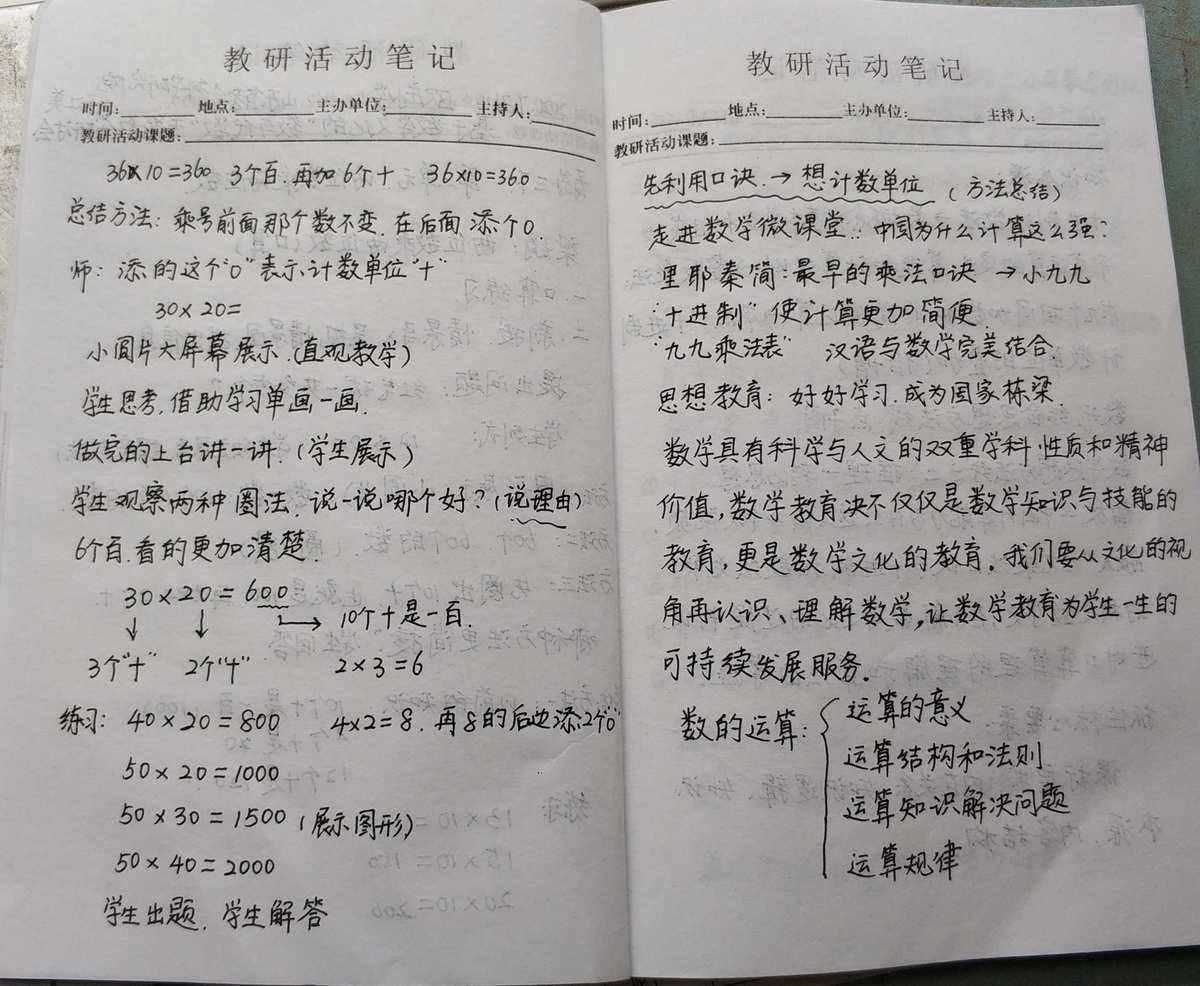 教研活动笔记
时间: 地点: 主办单位: 主持人:
教研活动课题:
36×10=360 3个百.再加6个十 36×10=360
总结方法: 乘号前面那个数不变.在后面添个0
师: 添的这个"0"表示计数单位"十"
30×20=
小圆片大屏幕展示.(直观教学)
学生思考.借助学习单画一画.
做完的上台讲一讲.(学生展示)
学生观察两种圈法.说一说哪个好?(说理由)
6个百.看的更加清楚.
30×20=600
→ 10个十是一百.
↓ ↓
3个"十" 2个"十" 2×3=6
练习: 40×20=800 4×2=8.再8的后边添2个"0"
50×20=1000
50×30=1500(展示图形)
50×40=2000
学生出题.学生解答
教研活动笔记
时间: 地点: 主办单位: 主持人:
教研活动课题:
先利用口诀.→想计数单位 (方法总结)
走进数学微课堂:中国为什么计算这么强?
里耶秦简:最早的乘法口诀 →小九九
"十进制" 使计算更加简便.
"九九乘法表" 汉语与数学完美结合.
思想教育: 好好学习.成为国家栋梁.
数学具有科学与人文的双重学科性质和精神
价值,数学教育决不仅仅是数学知识与技能的
教育,更是数学文化的教育。我们要从文化的视
角再认识、理解数学,让数学教育为学生一生的
可持续发展服务。
数的运算: { 运算的意义
运算结构和法则
运算知识解决问题
运算规律